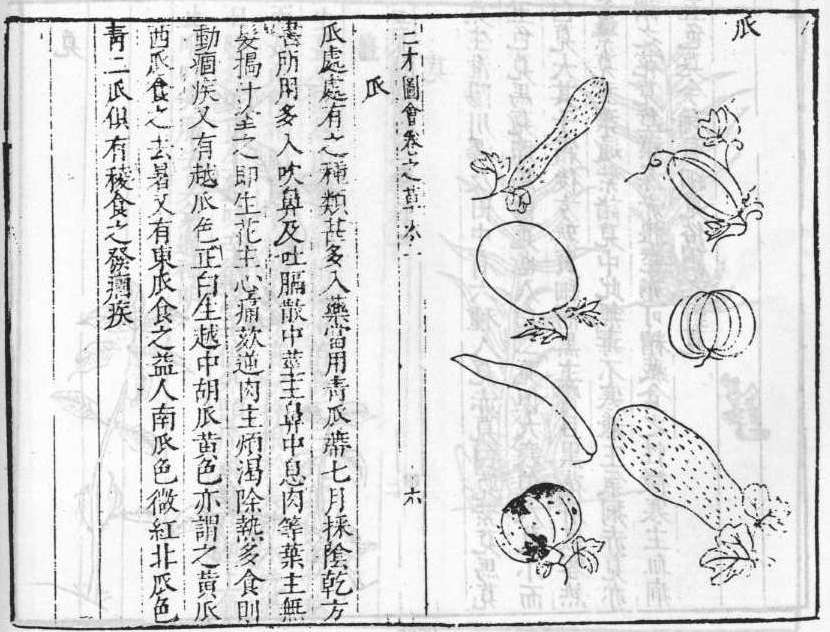 瓜
三才圖會卷之草木一
六
瓜
瓜處處有之種類甚多入藥當用青瓜蔕七月採陰乾方
書所用多入吹鼻及吐膈散中莖主鼻中息肉等葉主無
髮搗汁塗之即生花主心痛欬逆肉主煩渴除熱多食則
動痼疾又有越瓜色正白生越中胡瓜黃色亦謂之黃瓜
西瓜食之去暑又有東瓜食之益人南瓜色微紅北瓜色
青二瓜俱有稜食之發痼疾